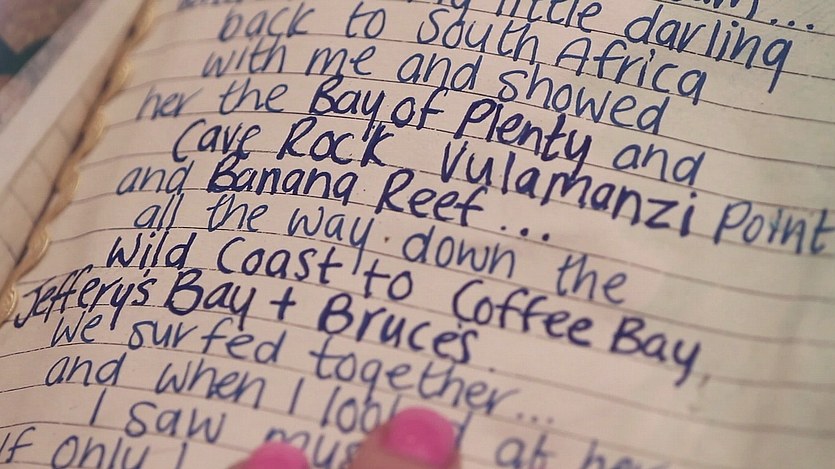 little darling
back to South Africa
with me and showed
her the Bay of Plenty and
Cave Rock Vulamanzi Point
and Banana Reef...
all the way down the
Wild Coast to Coffee Bay,
Jeffery's Bay + Bruce's
We surfed together...
and when I
I saw
If only I